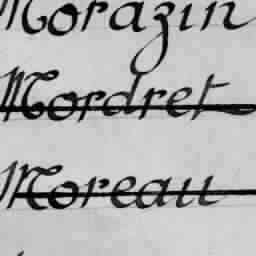 Morazin
Mordret
Moreau